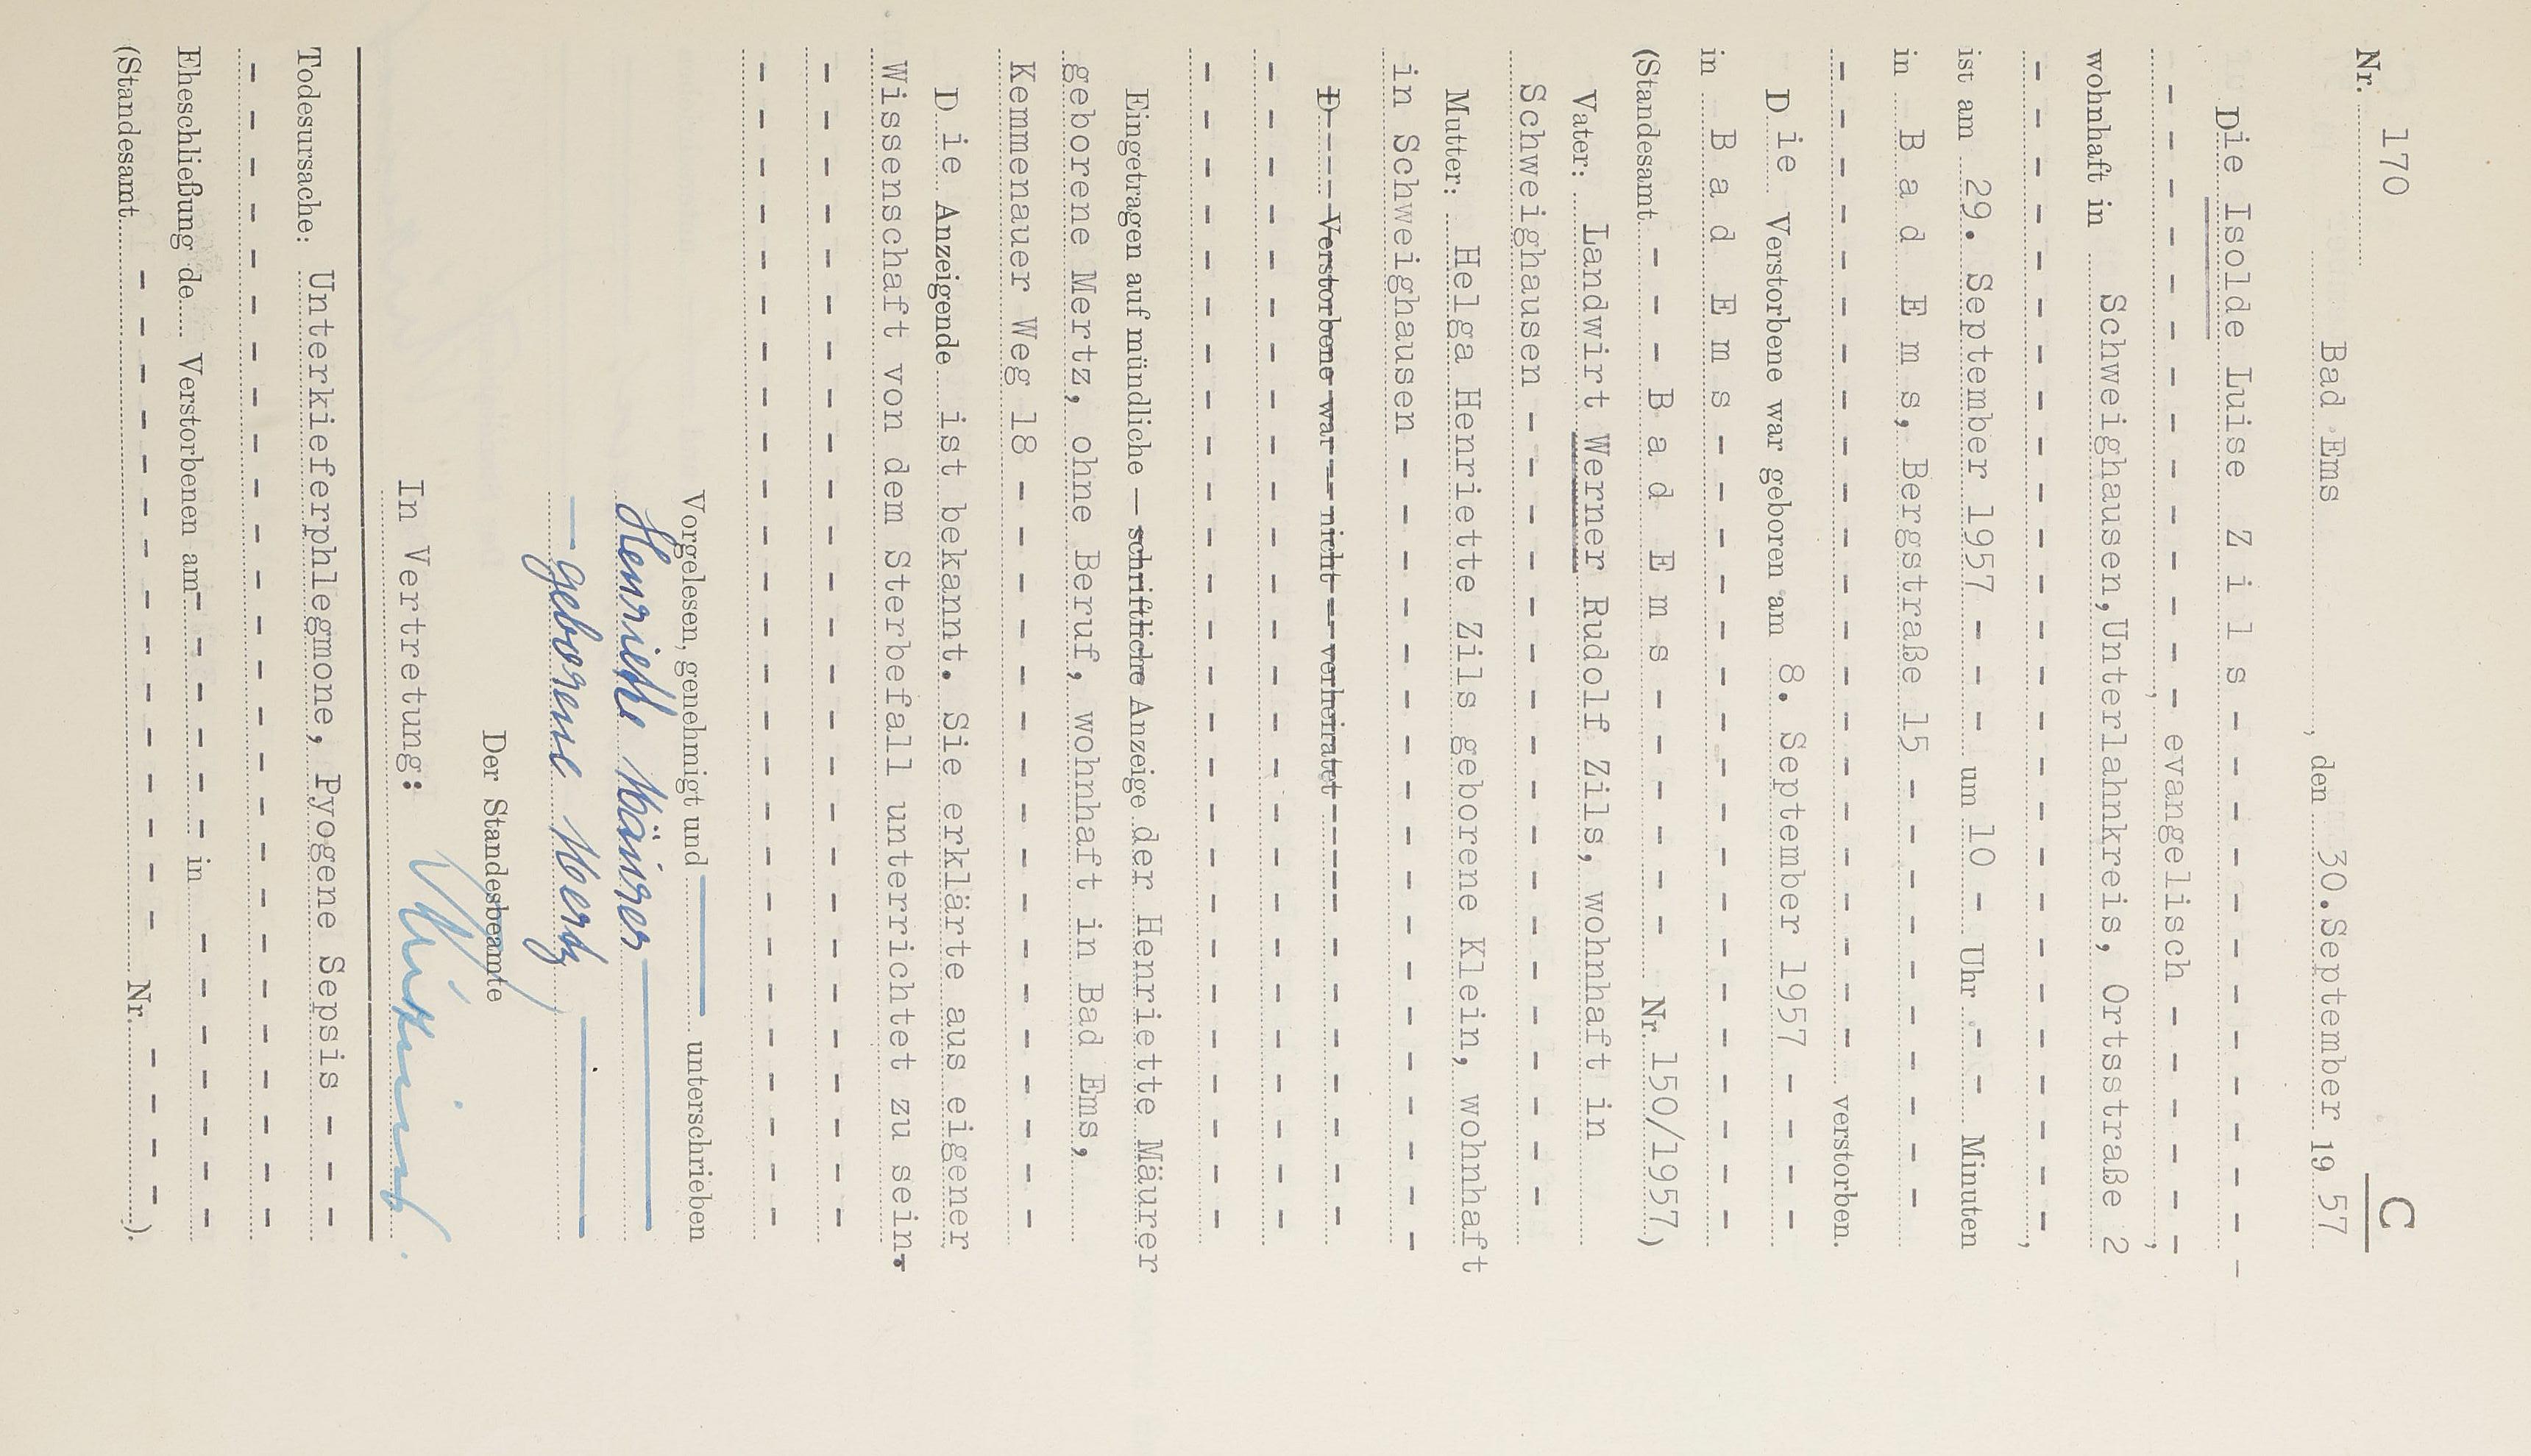 C
Nr. 170
Bad Ems, den 30.September 1957
Die Isolde Luise Z i l s - - - - - - - - -
- - - - - - - - - - - - - -, evangelisch - - - - - -,
wohnhaft in Schweighausen,Unterlahnkreis, Ortsstraße 2
- - - - - - - - - - - - - - - - - - - - - - - - - -,
ist am 29. September 1957 - - - um 10 - Uhr - - - Minuten
in B a d E m s, Bergstraße 15 - - - - - - - - - -
- - - - - - - - - - - - - - - - - - - - - - verstorben.
Die Verstorbene war geboren am 8. September 1957 - - - -
in B a d E m s - - - - - - - - - - - - - - - - - -
(Standesamt - - - B a d E m s - - - - - - Nr. 150/1957.)
Vater: Landwirt Werner Rudolf Zils, wohnhaft in
Schweighausen - - - - - - - - - - - - - - - - - -
Mutter: Helga Henriette Zils geborene Klein, wohnhaft
in Schweighausen - - - - - - - - - - - - - - - - - -
D---- Verstorbene war — nicht — verheiratet - - - - - - -
- - - - - - - - - - - - - - - - - - - - - - - - - -
- - - - - - - - - - - - - - - - - - - - - - - - - -
Eingetragen auf mündliche — schriftliche Anzeige der Henriette Mäurer
geborene Mertz, ohne Beruf, wohnhaft in Bad Ems,
Kemmenauer Weg 18 - - - - - - - - - - - - - - - - -
Die Anzeigende ist bekannt. Sie erklärte aus eigener
Wissenschaft von dem Sterbefall unterrichtet zu sein.
- - - - - - - - - - - - - - - - - - - - - - - - - -
- - - - - - - - - - - - - - - - - - - - - - - - - -
Vorgelesen, genehmigt und — unterschrieben
Henriette Mäurer —
— geborene Mertz —
Der Standesbeamte
In Vertretung:
Todesursache: Unterkieferphlegmone, Pyogene Sepsis - - -
- - - - - - - - - - - - - - - - - - - - - - - - - -
Eheschließung de.... Verstorbenen am - - - - - - in - - - - - - -
(Standesamt - - - - - - - - - - - - - - - Nr. - - - -).